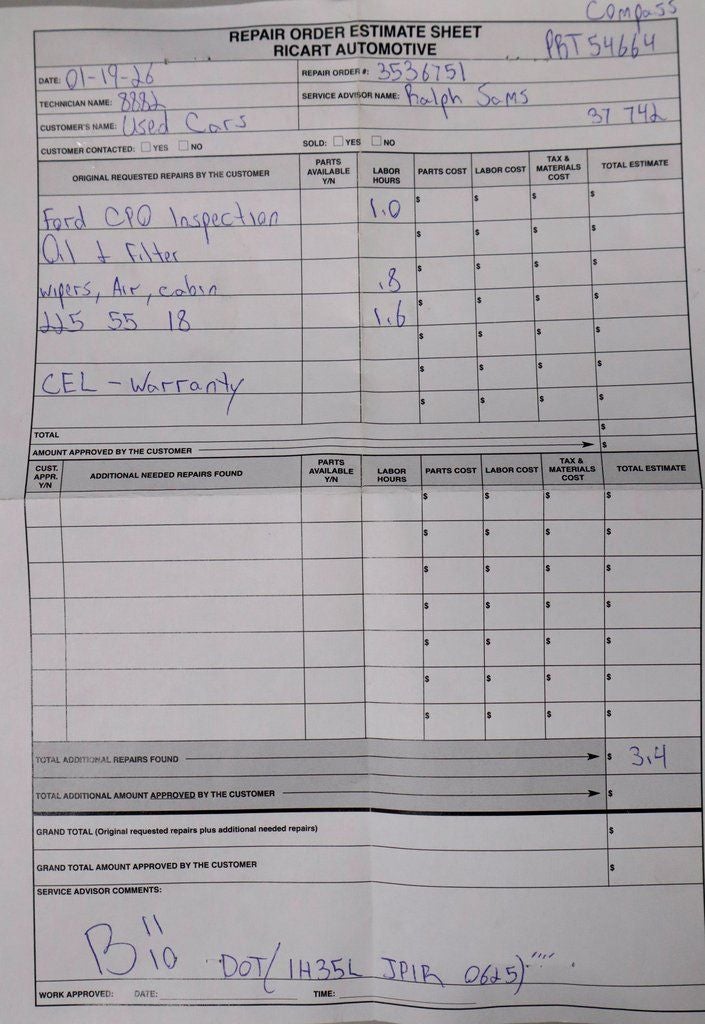 Compass
REPAIR ORDER ESTIMATE SHEET
RICART AUTOMOTIVE
PBT 54664
DATE: 01-19-26
REPAIR ORDER #: 3536751
TECHNICIAN NAME: 8882
SERVICE ADVISOR NAME: Ralph Sams
CUSTOMER'S NAME: Used Cars
37 742
CUSTOMER CONTACTED: YES NO
SOLD: YES NO
ORIGINAL REQUESTED REPAIRS BY THE CUSTOMER PARTS AVAILABLE Y/N LABOR HOURS PARTS COST LABOR COST TAX & MATERIALS COST TOTAL ESTIMATE
Ford CPO Inspection 1.0 $ $ $ $
Oil & Filter $ $ $ $
wipers, Air, cabin .8 $ $ $ $
225 55 18 1.6 $ $ $ $
$ $ $ $
CEL - Warranty $ $ $ $
$ $ $ $
TOTAL $
AMOUNT APPROVED BY THE CUSTOMER $
CUST. APPR. Y/N ADDITIONAL NEEDED REPAIRS FOUND PARTS AVAILABLE Y/N LABOR HOURS PARTS COST LABOR COST TAX & MATERIALS COST TOTAL ESTIMATE
$ $ $ $
$ $ $ $
$ $ $ $
$ $ $ $
$ $ $ $
$ $ $ $
$ $ $ $
TOTAL ADDITIONAL REPAIRS FOUND $ 3.4
TOTAL ADDITIONAL AMOUNT APPROVED BY THE CUSTOMER $
GRAND TOTAL (Original requested repairs plus additional needed repairs) $
GRAND TOTAL AMOUNT APPROVED BY THE CUSTOMER $
SERVICE ADVISOR COMMENTS:
B 11
10 DOT(1H35L JP1R 0625)""
WORK APPROVED: DATE: TIME: